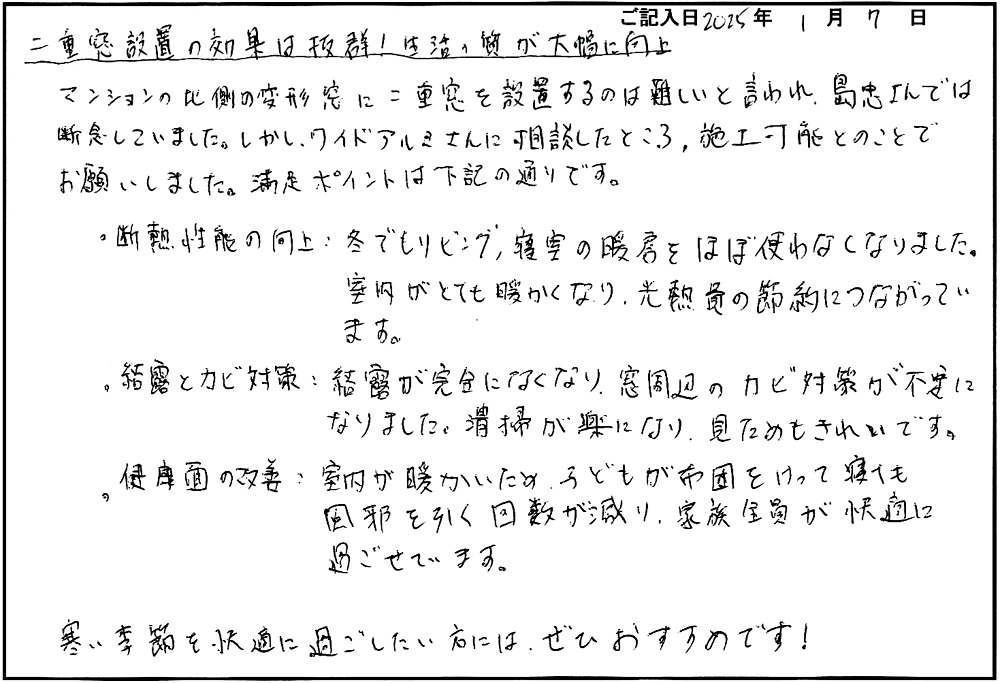 ご記入日 2025年 1月 7日
二重窓設置の効果は抜群！生活の質が大幅に向上
マンションの北側の変形窓に二重窓を設置するのは難しいと言われ、島忠さんでは
断念していました。しかし、ワイドアルミさんに相談したところ、施工可能とのことで
お願いしました。満足ポイントは下記の通りです。
・断熱性能の向上：冬でもリビング、寝室の暖房をほぼ使わなくなりました。
室内がとても暖かくなり、光熱費の節約につながってい
ます。
・結露とカビ対策：結露が完全になくなり、窓周辺のカビ対策が不要に
なりました。清掃が楽になり、見ためもきれいです。
・健康面の改善：室内が暖かいため、子どもが布団をけって寝ても
風邪を引く回数が減り、家族全員が快適に
過ごせています。
寒い季節を快適に過ごしたい方には、ぜひおすすめです！